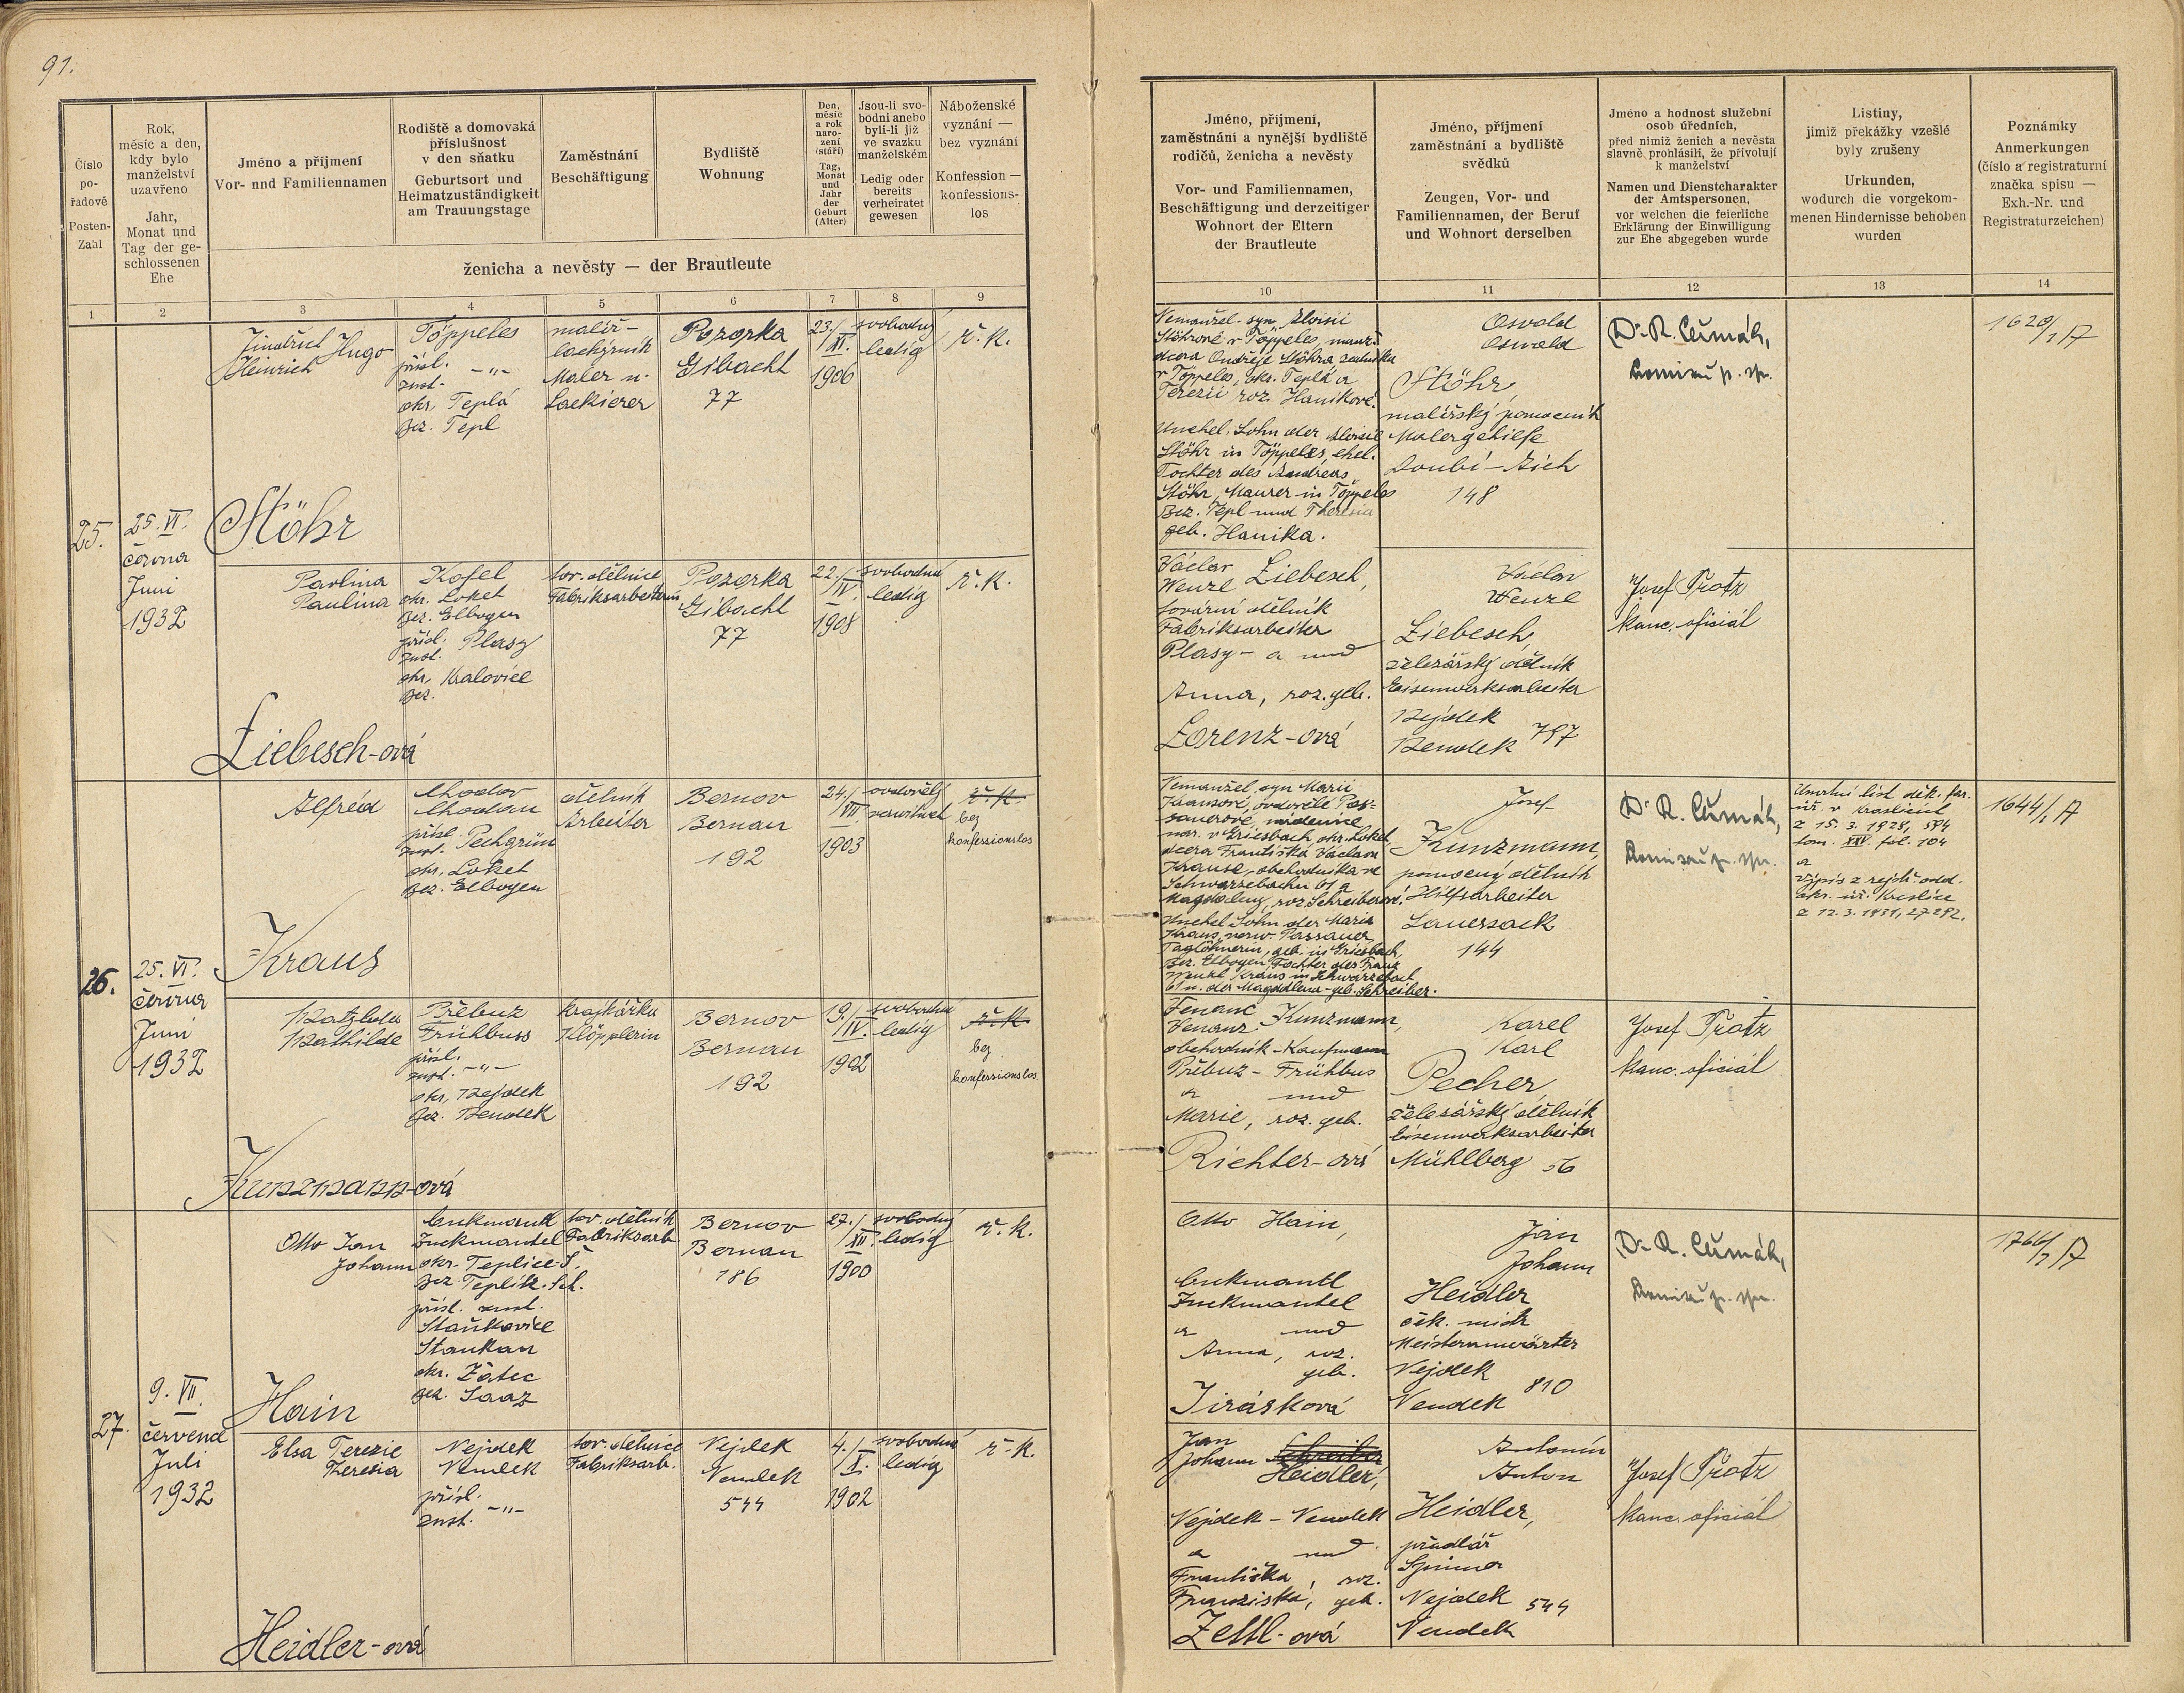 91.
Číslo
po-
řadové
Posten-
Zahl
Rok,
měsíc a den,
kdy bylo
manželství
uzavřeno
Jahr,
Monat und
Tag der ge-
schlossenen
Ehe
Jméno a příjmení
Vor- nnd Familiennamen
Rodiště a domovská
příslušnost
v den sňatku
Geburtsort und
Heimatzuständigkeit
am Trauungstage
Zaměstnání
Beschäftigung
Bydliště
Wohnung
Den,
měsíc
a rok
naro-
zení
(stáří)
Tag,
Monat
und
Jahr
der
Geburt
(Alter)
Jsou-li svo-
bodni anebo
byli-li již
ve svazku
manželském
Ledig oder
bereits
verheiratet
gewesen
Náboženské
vyznání —
bez vyznání
Konfession —
konfessions-
los
ženicha a nevěsty — der Brautleute
1 2 3 4 5 6 7 8 9
Jméno, příjmení,
zaměstnání a nynější bydliště
rodičů, ženicha a nevěsty
Vor- und Familiennamen,
Beschäftigung und derzeitiger
Wohnort der Eltern
der Brautleute
Jméno, příjmení
zaměstnání a bydliště
svědků
Zeugen, Vor- und
Familiennamen, der Beruf
und Wohnort derselben
Jméno a hodnost služební
osob úředních,
před nimiž ženich a nevěsta
slavně prohlásili, že přivolují
k manželství
Namen und Dienstcharakter
der Amtspersonen,
vor welchen die feierliche
Erklärung der Einwilligung
zur Ehe abgegeben wurde
Listiny,
jimiž překážky vzešlé
byly zrušeny
Urkunden,
wodurch die vorgekom-
menen Hindernisse behoben
wurden
Poznámky
Anmerkungen
(číslo a registraturní
značka spisu —
Exh.-Nr. und
Registraturzeichen)
10 11 12 13 14
25.
25. VI.
června
Juni
1932
Jindřich Hugo
Heinrich
Stöhr
Töppeles
přísl.
zust. -„-
okr. Teplá
Bez. Tepl
malíř-
lackýrník
Maler u.
Lackierer
Pozorka
Gibacht
77
23./
XI.
1906
svobodný
ledig
ř. k.
Nemanžel. syn Aloisii
Stöhrové v Töppeles, manž.
dcera Ondřeje Stöhra zedníka
v Töppeles, okr. Teplá a
Terezii roz. Hanikové.
Unehel. Sohn der Aloisie
Stöhr in Töppeles, ehel.
Tochter des Andreas
Stöhr, Maurer in Töppeles
Bez. Tepl und Theresia
geb. Hanika.
Osvald
Oswald
Stöhr,
malířský pomocník
Malergehilfe
Doubí - Aich
148
Dr. R. Čumák,
1620/1 A
Pavlina
Paulina
Liebesch-ová
Kofel
okr. Loket
Bez. Elbogen
přísl. Plasy
zust.
okr. Kralovice
Bez.
tov. dělnice
Fabriksarbeiterin
Pozorka
Gibacht
77
22./
IV.
1908
svobodná
ledig
ř. k.
Václav
Wenzl Liebesch,
tovární dělník
Fabriksarbeiter
Plasy - a und
Anna, roz. geb.
Lorenz-ová
Václav
Wenzl
Liebesch,
železářský dělník
Eisenwerksarbeiter
Nejdek
Neudek 797
Josef Protz
kanc. oficiál
26.
25. VI.
června
Juni
1932
Alfréd
Kraus
Chodov
Chodau
přísl. Pechgrün
zust.
okr. Loket
Bez. Elbogen
dělník
Arbeiter
Bernov
Bernau
192
24./
VII.
1903
ovdovělý
verwitwet
ř. k.
bez
konfessionslos
Nemanžel. syn Marii
Krausové, ovdovělé Pas-
sauerové, nádenice
nar. v Griesbach, okr. Loket,
dcera Františka Václava
Krause, obchodníka ve
Schwarzebachu 61 a
Magdaleny, roz. Schreiberové.
Unehel. Sohn der Maria
Kraus, verw. Passauer
Taglöhnerin, geb. in Griesbach,
Bez. Elbogen, Tochter des Franz
Wenzl Kraus in Schwarzebach
61 u. der Magdalena geb. Schreiber.
Josef
Kunzmann,
pomocný dělník
Hilfsarbeiter
Sauersack
144
Dr. R. Čumák,
Úmrtní list děk. far.
úř. v Kraslicích
z 15. 3. 1928, 594
tom. XXV. fol. 104
a
výpis z rejstř. odd.
okr. úř. Kraslice
1644/1 A
Matylda
Mathilde
Kunzmann-ová
Přebuz
Frühbuss
přísl.
zust. -„-
okr. Nejdek
Bez. Neudek
krajkářka
Klöpplerin
Bernov
Bernau
192
19./
IV.
1902
svobodná
ledig
ř. k.
bez
konfessionslos
Venanc
Venanz Kunzmann,
obchodník - Kaufmann
Přebuz - Frühbus
a und
Marie, roz. geb.
Richter-ová
Karel
Karl
Pecher,
železářský dělník
Eisenwerksarbeiter
Mühlberg 56
Josef Protz
kanc. oficiál
27.
9. VII.
července
Juli
1932
Otto Jan
Johann
Hain
Cukmantl
Zuckmantel
okr. Teplice-Š.
Bez. Teplitz-Sch.
přísl. zust.
Staňkovice
Stankau
okr. Žatec
Bez. Saaz
tov. dělník
Fabriksarb.
Bernov
Bernau
186
27./
XII.
1900
svobodný
ledig
ř. k.
Otto Hain,
Cukmantl
Zuckmantel
a und
Anna, roz.
geb.
Jirásková
Jan
Johann
Heidler
ček. mistr
Meisteranwärter
Nejdek
Neudek 810
Dr. R. Čumák,
1766/1 A
Elsa Terezie
Theresia
Heidler-ová
Nejdek
Neudek
přísl.
zust. -„-
tov. dělnice
Fabriksarb.
Nejdek
Neudek
544
4./
X.
1902
svobodná
ledig
ř. k.
Jan
Johann Schreiber
Heidler,
Nejdek - Neudek
a und
Františka, roz.
Franziska, geb.
Zettl-ová
Antonín
Anton
Heidler,
přadlář
Spinner
Nejdek 544
Neudek
Josef Protz
kanc. oficiál